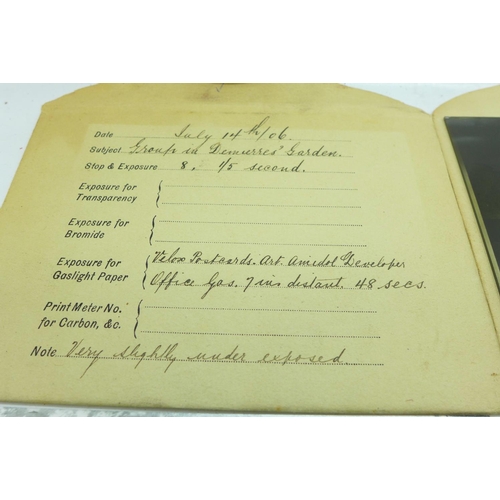 Date July 14th/06.
Subject Group in Demurres' Garden.
Stop & Exposure 8. 1/5 second.
Exposure for
Transparency
Exposure for
Bromide
Exposure for Velox Postcards. Art. Amidol Developer
Gaslight Paper Office Gas. 7 ins distant. 48 secs.
Print Meter No.
for Carbon, &c.
Note Very slightly under exposed.